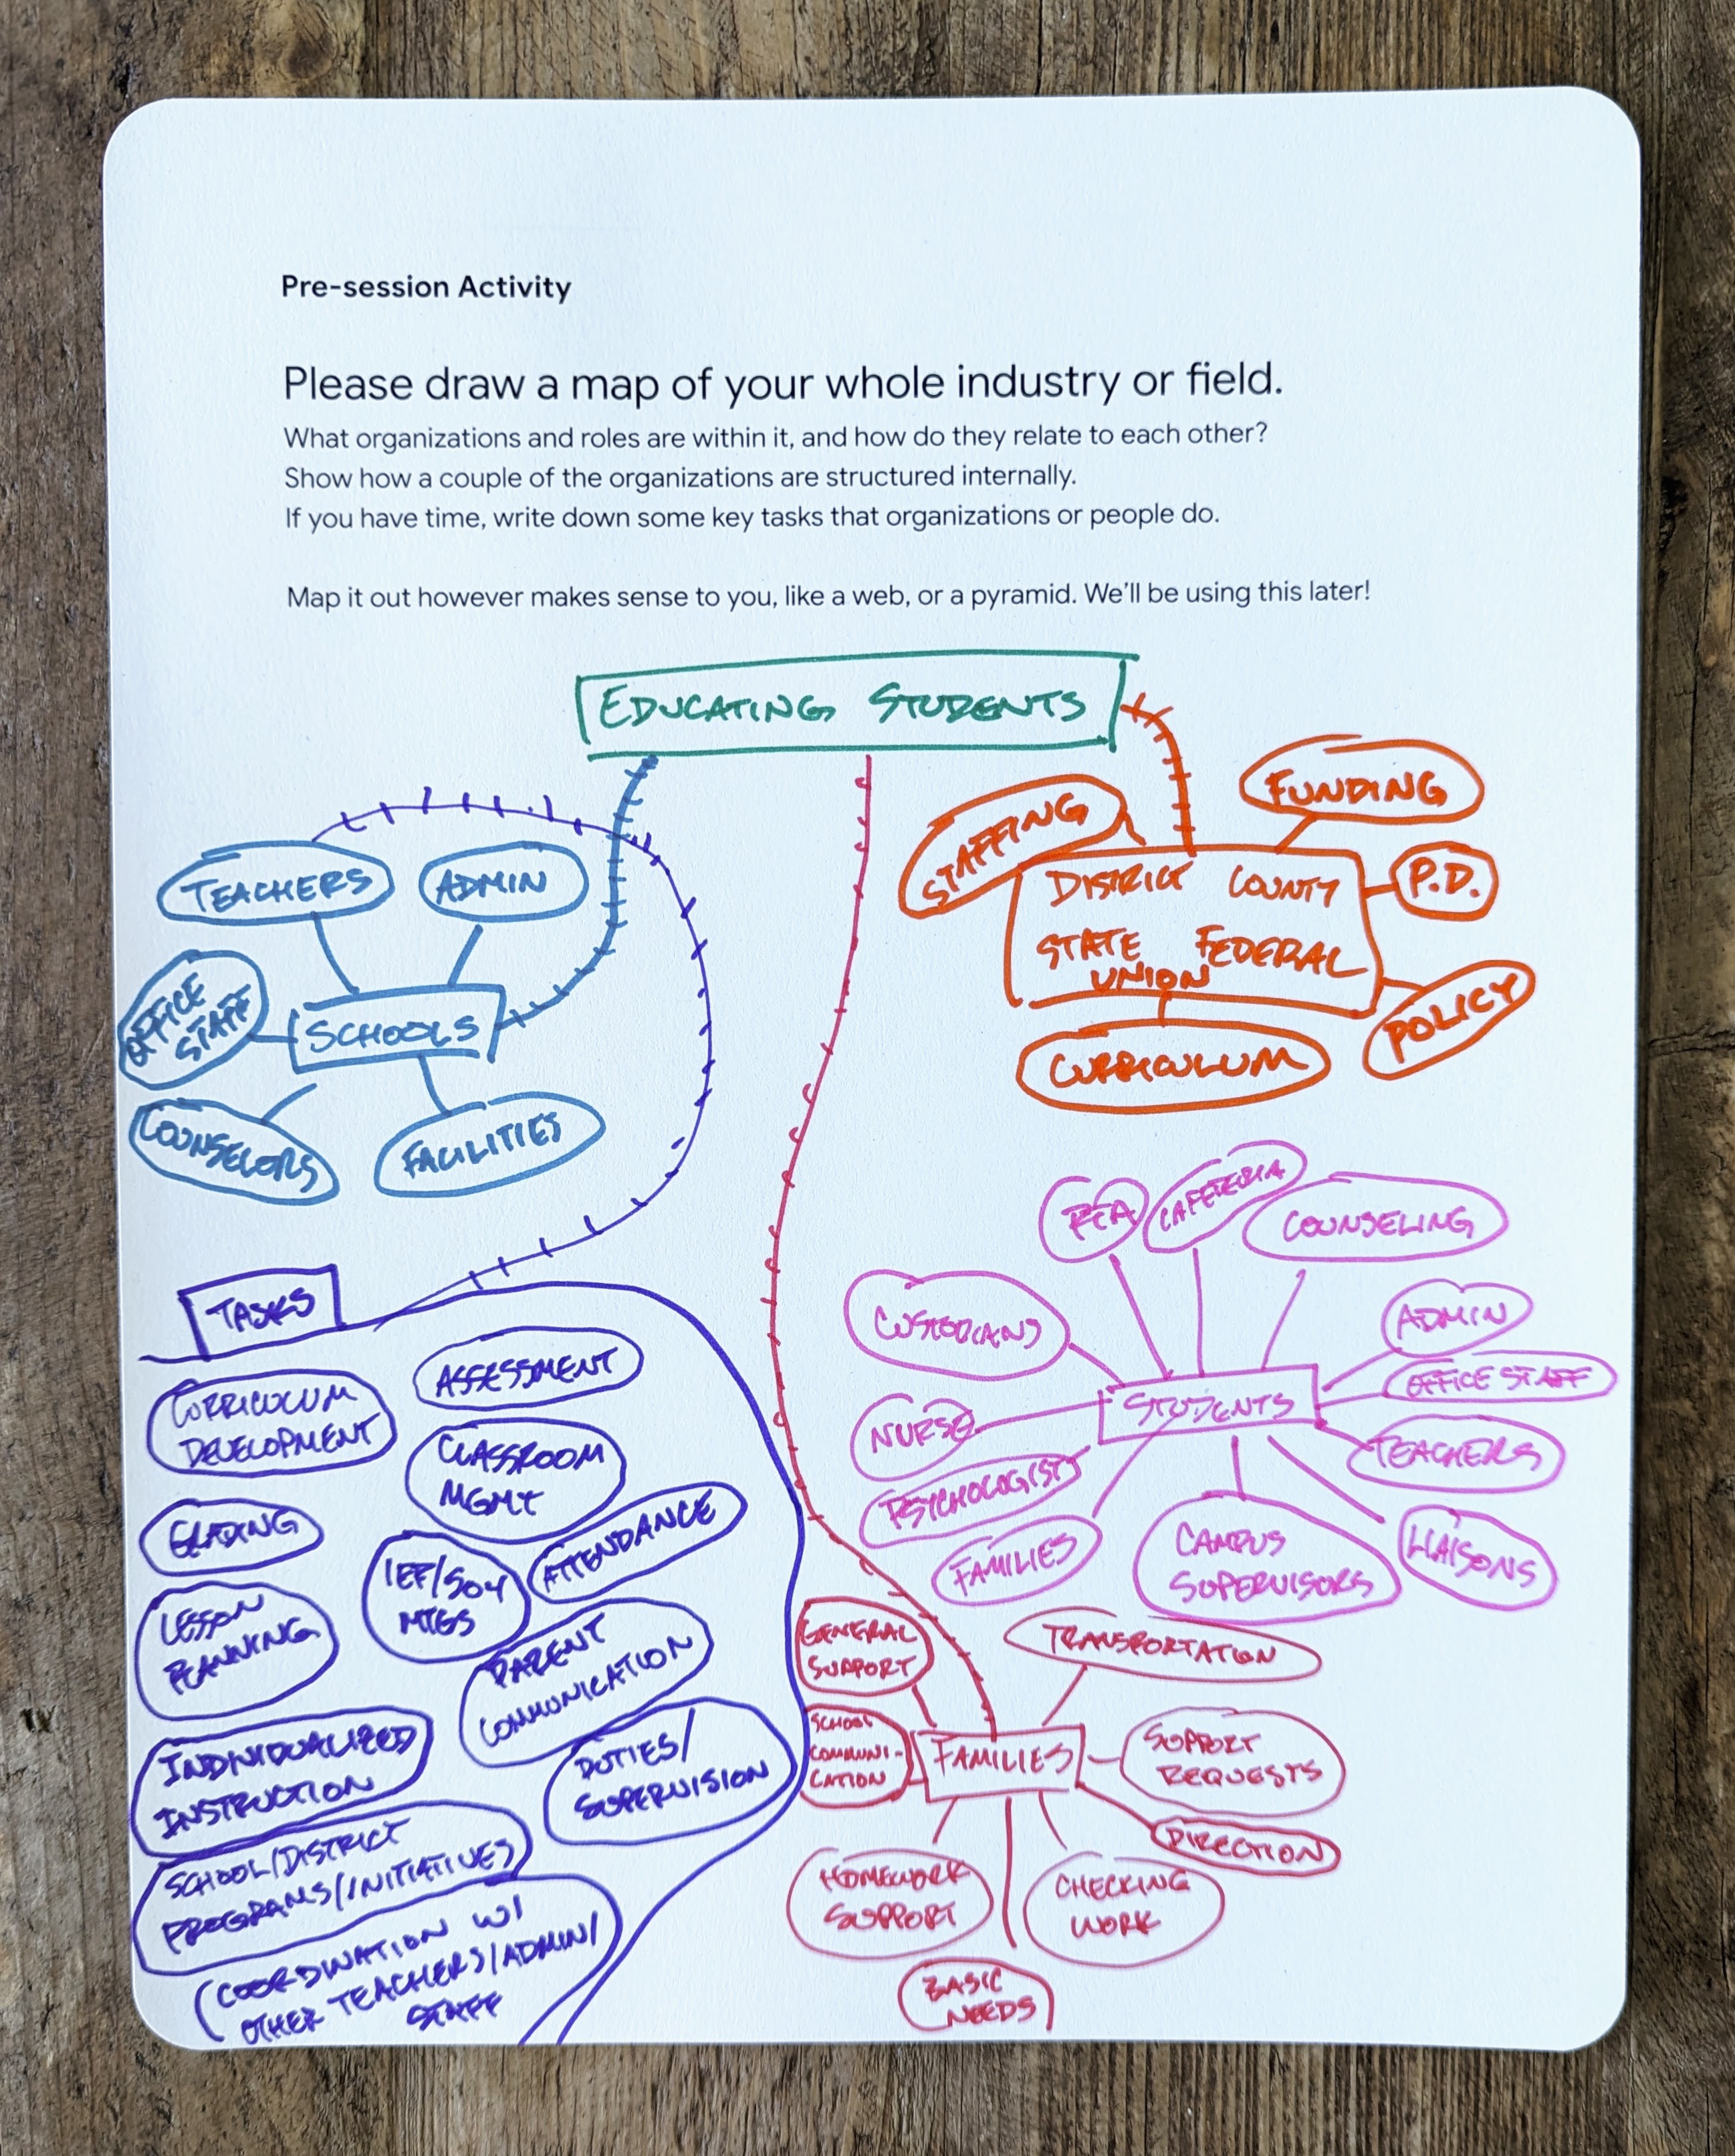 Pre-session Activity
Please draw a map of your whole industry or field.
What organizations and roles are within it, and how do they relate to each other?
Show how a couple of the organizations are structured internally.
If you have time, write down some key tasks that organizations or people do.
Map it out however makes sense to you, like a web, or a pyramid. We'll be using this later!
EDUCATING STUDENTS
TEACHERS
ADMIN
OFFICE
STAFF
SCHOOLS
COUNSELORS
FACILITIES
STAFFING
FUNDING
DISTRICT COUNTY
STATE FEDERAL
UNION
P.D.
POLICY
CURRICULUM
TASKS
CURRICULUM
DEVELOPMENT
ASSESSMENT
CLASSROOM
MGMT
GRADING
IEP/504
MTGS
ATTENDANCE
LESSON
PLANNING
PARENT
COMMUNICATION
INDIVIDUALIZED
INSTRUCTION
DUTIES/
SUPERVISION
SCHOOL/DISTRICT
PROGRAMS/INITIATIVES
COORDINATION W/
OTHER TEACHERS/ADMIN/
STAFF
CAFETERIA
COUNSELING
CUSTODIANS
ADMIN
OFFICE STAFF
STUDENTS
NURSE
TEACHERS
PSYCHOLOGIST
FAMILIES
CAMPUS
SUPERVISORS
LIAISONS
GENERAL
SUPPORT
TRANSPORTATION
SCHOOL
COMMUNI-
CATION
FAMILIES
SUPPORT
REQUESTS
DIRECTION
HOMEWORK
SUPPORT
CHECKING
WORK
BASIC
NEEDS